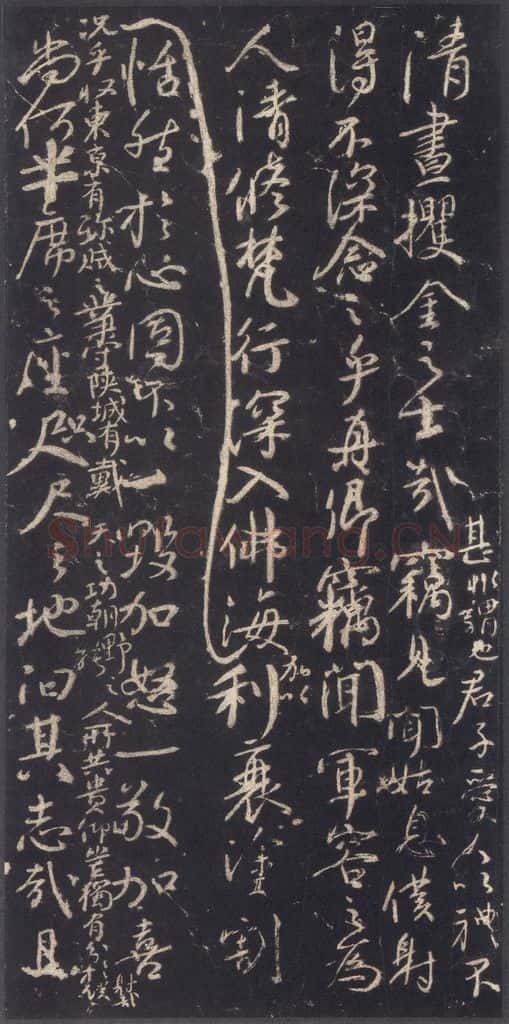 清晝攫金之士哉
甚非謂也君子愛人以禮不
竊見聞姑息僕射
得不深念之乎真卿竊聞軍容之為
人清修梵行深入佛海
加以
利衰塗割
恬然於心固不以一毀加怒一敬加喜
況乎收東京有殄賊之業守陝城有戴天之功朝野之人所共貴仰豈獨有分於僕射哉
尚何半席之座咫尺之地汩其志哉且
Shufawang.CN